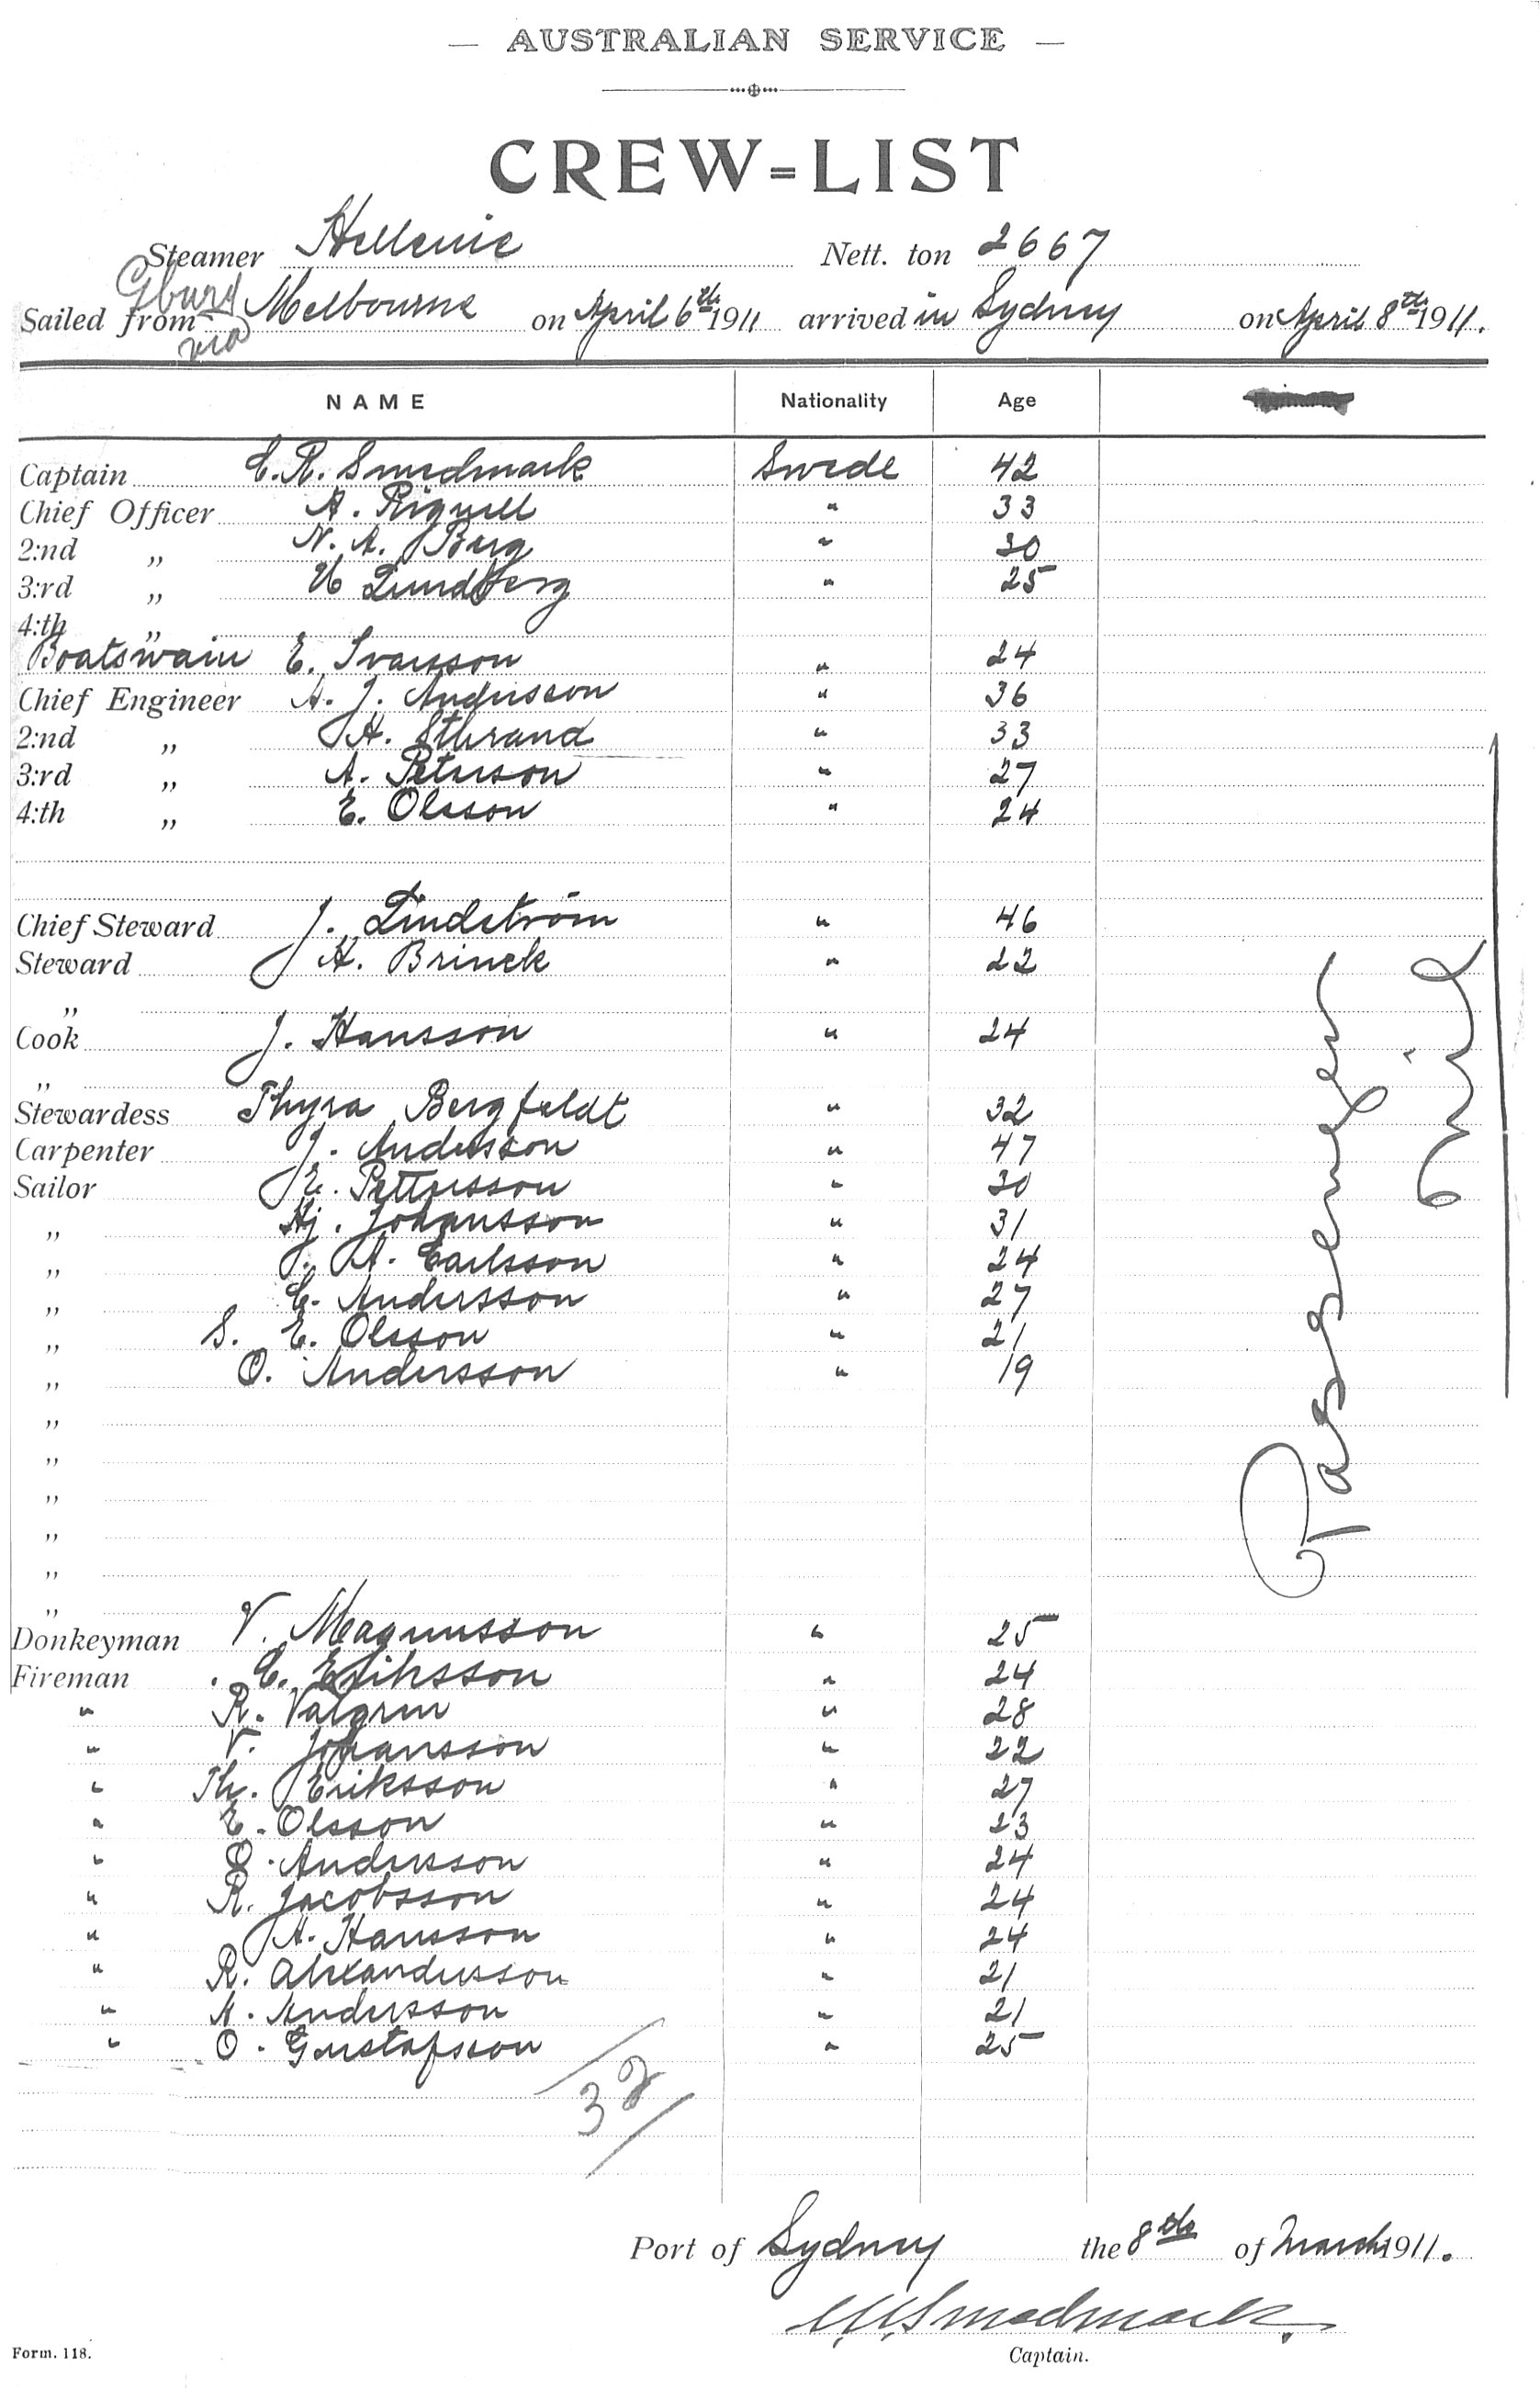 — AUSTRALIAN SERVICE —
CREW=LIST
Steamer Hellenic Nett. ton 2667
Gburg via
Sailed from Melbourne on April 6th 1911 arrived in Sydney on April 8th 1911.
NAME Nationality Age
Captain C. R. Smedmark Swede 42
Chief Officer A. Rignell " 33
2:nd „ N. A. Berg " 30
3:rd „ Lundberg " 25
4:th „
Boatswain E. Ivarsson " 24
Chief Engineer A. J. Andersson " 36
2:nd „ H. Sthrand " 33
3:rd „ A. Peterson " 27
4:th „ E. Olsson " 24
Chief Steward J. Lindström " 46
Steward H. Brinck " 22
„
Cook J. Hansson " 24
„
Stewardess Thyra Bergfeldt " 32
Carpenter J. Andersson " 47
Sailor E. Pettersson " 30
„ Hj. Johansson " 31
„ J. A. Carlsson " 24
„ C. Andersson " 27
„ S. E. Olsson " 21
„ O. Andersson " 19
„
„
„
„
„
„
Donkeyman V. Magnusson " 25
Fireman C. Eriksson " 24
" R. Valgren " 28
" V. Johansson " 22
" Th. Eriksson " 27
" E. Olsson " 23
" O. Andersson " 24
" R. Jacobsson " 24
" H. Hansson " 24
" R. Alexandersson " 21
" A. Andersson " 21
" O. Gustafsson " 25
32
Passengers
Nil
Port of Sydney the 8th of March 1911.
C. R. Smedmark.
Captain.
Form. 118.